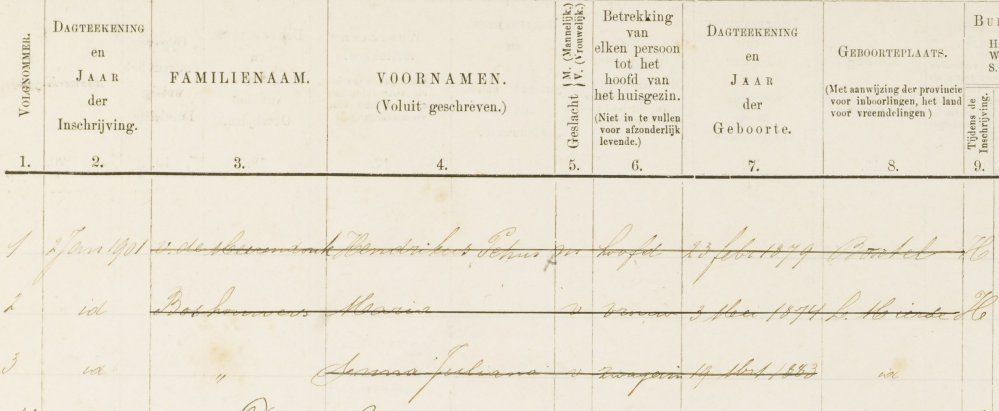 VOLGNOMMER.
DAGTEEKENING
en
JAAR
der
Inschrijving.
FAMILIENAAM.
VOORNAMEN.
(Voluit geschreven.)
Geslacht { M. (Mannelijk.) V. (Vrouwelijk.)
Betrekking
van
elken persoon
tot het
hoofd van
het huisgezin.
(Niet in te vullen
voor afzonderlijk
levende.)
DAGTEEKENING
en
JAAR
der
Geboorte.
GEBOORTEPLAATS.
(Met aanwijzing der provincie
voor inboorlingen, het land
voor vreemdelingen)
BU
H
W
S.
Tijdens de
Inschrijving.
1. 2. 3. 4. 5. 6. 7. 8. 9.
1 2 Jan 1901 v. de Hendrikus Petrus m hoofd 23 feb 1879 Boxtel H
2 id Maria v vrouw 3 1874 L. Mierde H
3 id " Juliana v zwagerin 19 Mrt 1883 id